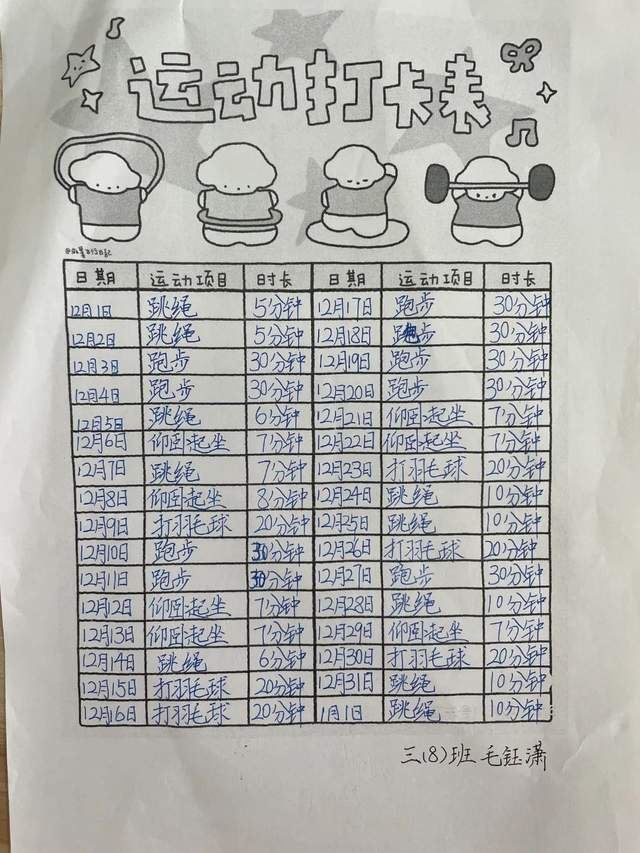 运动打卡表
日期 运动项目 时长 日期 运动项目 时长
12月1日 跳绳 5分钟 12月17日 跑步 30分钟
12月2日 跳绳 5分钟 12月18日 跑步 30分钟
12月3日 跑步 30分钟 12月19日 跑步 30分钟
12月4日 跑步 30分钟 12月20日 跑步 30分钟
12月5日 跳绳 6分钟 12月21日 仰卧起坐 7分钟
12月6日 仰卧起坐 7分钟 12月22日 仰卧起坐 7分钟
12月7日 跳绳 7分钟 12月23日 打羽毛球 20分钟
12月8日 仰卧起坐 8分钟 12月24日 跳绳 10分钟
12月9日 打羽毛球 20分钟 12月25日 跳绳 10分钟
12月10日 跑步 30分钟 12月26日 打羽毛球 20分钟
12月11日 跑步 30分钟 12月27日 跑步 30分钟
12月12日 仰卧起坐 7分钟 12月28日 跳绳 10分钟
12月13日 仰卧起坐 7分钟 12月29日 仰卧起坐 7分钟
12月14日 跳绳 6分钟 12月30日 打羽毛球 20分钟
12月15日 打羽毛球 20分钟 12月31日 跳绳 10分钟
12月16日 打羽毛球 20分钟 1月1日 跳绳 10分钟
三(8)班 毛钰潇